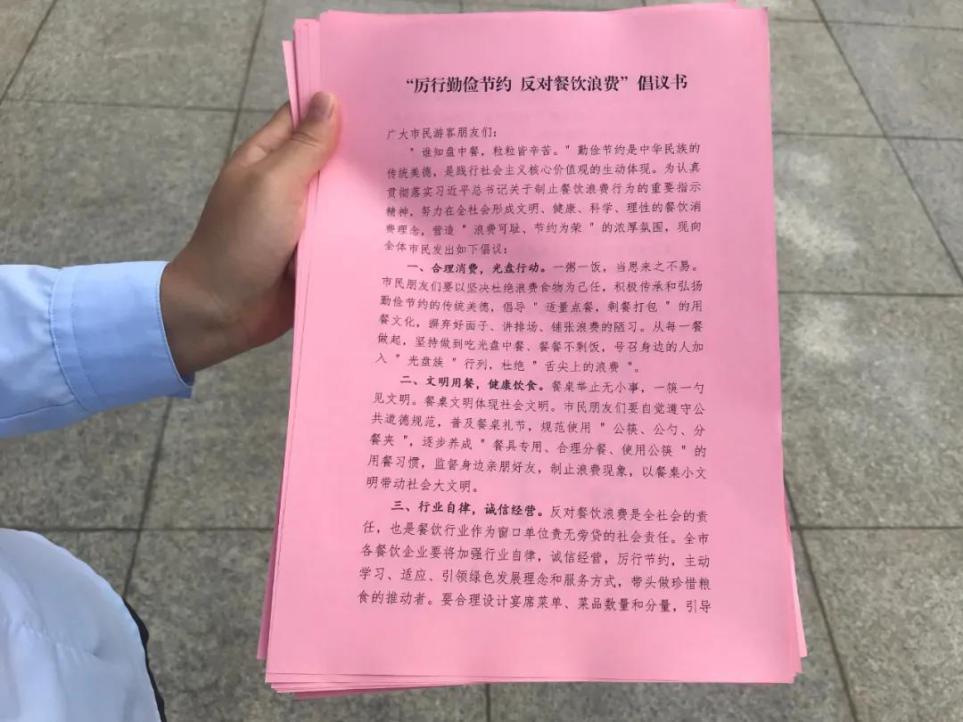 “厉行勤俭节约 反对餐饮浪费”倡议书
广大市民游客朋友们：
"谁知盘中餐，粒粒皆辛苦。"勤俭节约是中华民族的
传统美德，是践行社会主义核心价值观的生动体现。为认真
贯彻落实习近平总书记关于制止餐饮浪费行为的重要指示
精神，努力在全社会形成文明、健康、科学、理性的餐饮消
费理念，营造"浪费可耻、节约为荣"的浓厚氛围，现向
全体市民发出如下倡议：
一、合理消费，光盘行动。一粥一饭，当思来之不易。
市民朋友们要以坚决杜绝浪费食物为己任，积极传承和弘扬
勤俭节约的传统美德，倡导"适量点餐，剩餐打包"的用
餐文化，摒弃好面子、讲排场、铺张浪费的陋习。从每一餐
做起，坚持做到吃光盘中餐、餐餐不剩饭，号召身边的人加
入"光盘族"行列，杜绝"舌尖上的浪费"。
二、文明用餐，健康饮食。餐桌举止无小事，一筷一勺
见文明。餐桌文明体现社会文明。市民朋友们要自觉遵守公
共道德规范，普及餐桌礼节，规范使用"公筷、公勺、分
餐夹"，逐步养成"餐具专用、合理分餐、使用公筷"的
用餐习惯，监督身边亲朋好友，制止浪费现象，以餐桌小文
明带动社会大文明。
三、行业自律，诚信经营。反对餐饮浪费是全社会的责
任，也是餐饮行业作为窗口单位责无旁贷的社会责任。全市
各餐饮企业要将加强行业自律，诚信经营，厉行节约，主动
学习、适应、引领绿色发展理念和服务方式，带头做珍惜粮
食的推动者。要合理设计宴席菜单、菜品数量和分量，引导